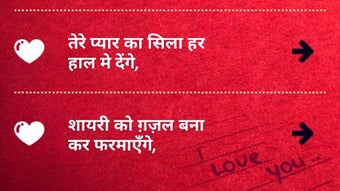 तेरे प्यार का सिला हर
हाल मे देंगे,
शायरी को ग़ज़ल बना
कर फरमाएँगे,
I
LOVE
YOU..